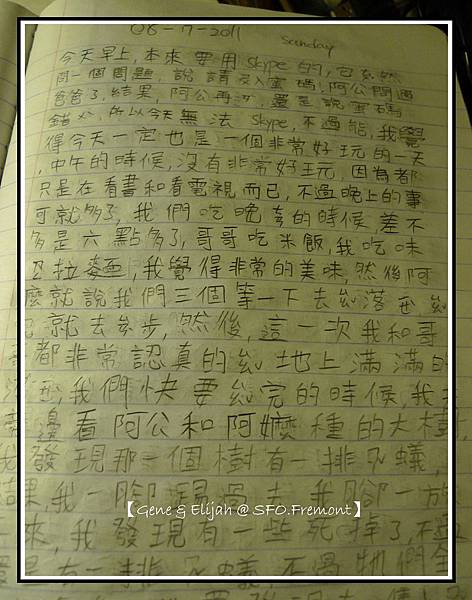 08-7-2011
Sunday
今天早上,本來要用skype的,它突然
問一個問題,說請輸入密碼,阿公問過
爸爸了,結果,阿公再次,還是說密碼
錯火,所以今天無法skype,不過能,我覺
得今天一定也是一個非常好玩的一天
,中午的時候,沒有非常好玩,因為都
只是在看書和看電視而已,不過晚上的事
可就多了,我們吃晚 的時候,差不
多是六點多了,哥哥吃米飯,我吃味
拉麵,我覺得非常的美味然後阿
麼就說我們三個等一下去 落
就去 步,然後,這一次我和哥
都非常認真的 地上滿滿的
,我們快要 完的時候,我
邊看阿公和阿嬤種的大樹
發現那一個樹有一排 蟻,
結果,我一腳踢過去,我腳一放
來,我發現有一些死掉了,不過
有一排 蟻,不過牠們
【Gene & Elijah @ SFO.Fremont】